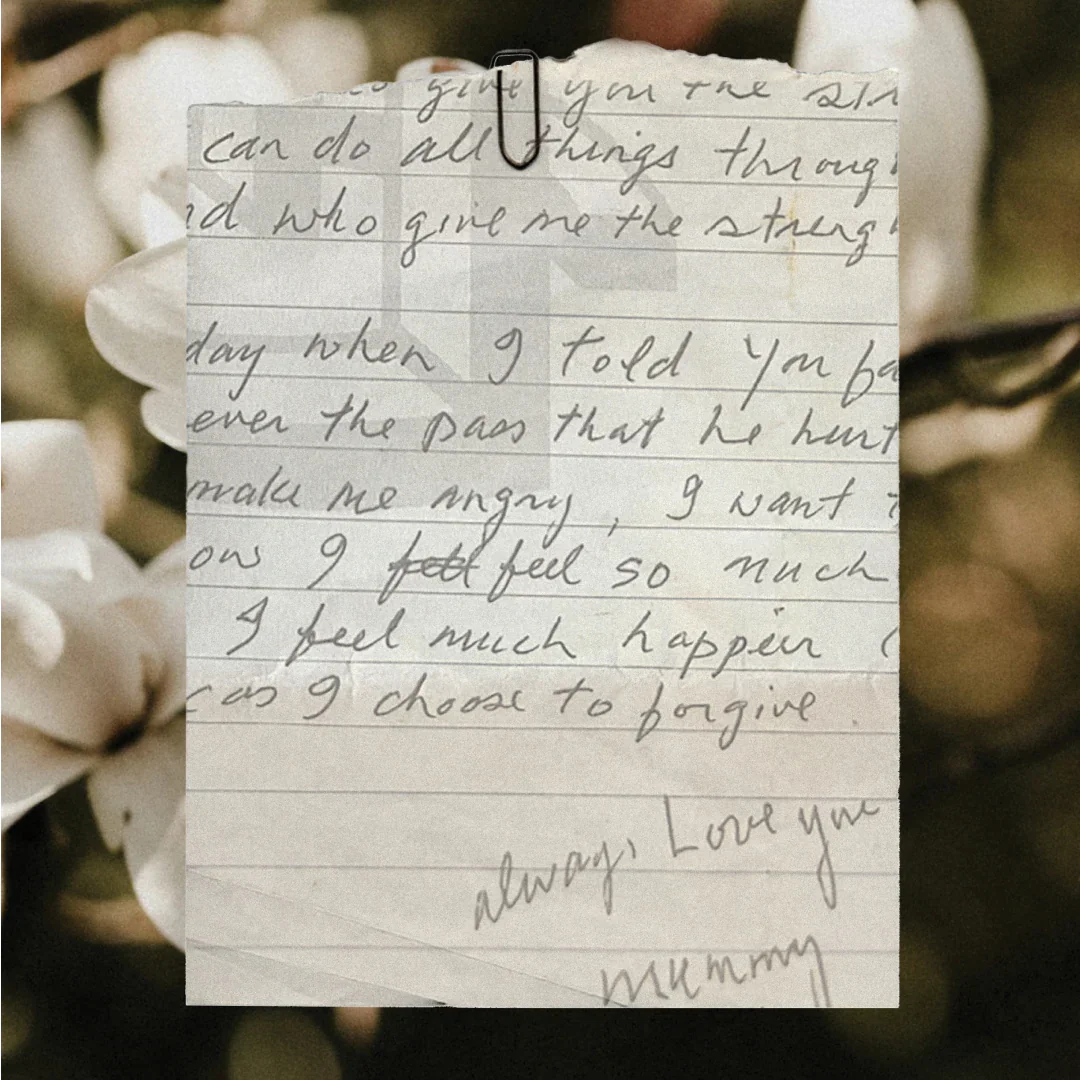 give you the str
can do all things throug
nd who give me the streng
day when I told you fa
ever the pass that he hurt
make me angry, I want
ow I fell feel so much
I feel much happier (
cas I choose to forgive.
always Love you
Mummy